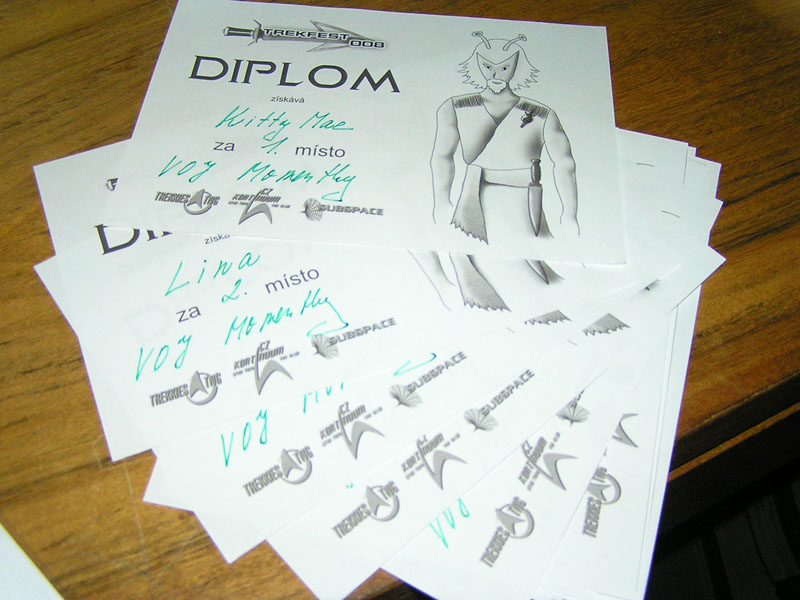 TREKFEST 008
DIPLOM
získává
Kitty Mae
za 1. místo
VOY Momentky
TREKKIES TWG CZ KONTINUUM SUBSPACE
DI
získá
Lina
za 2. místo
VOY Momentky
TREKKIES TWG CZ KONTINUUM SUBSPACE
VOY
TREKKIES TWG CZ KONTINUUM SUBSPACE
TREKKIES TWG CZ KONTINUUM SUBSPACE
VOY
TREKKIES TWG CZ KONTINUUM
TREKKIES TWG